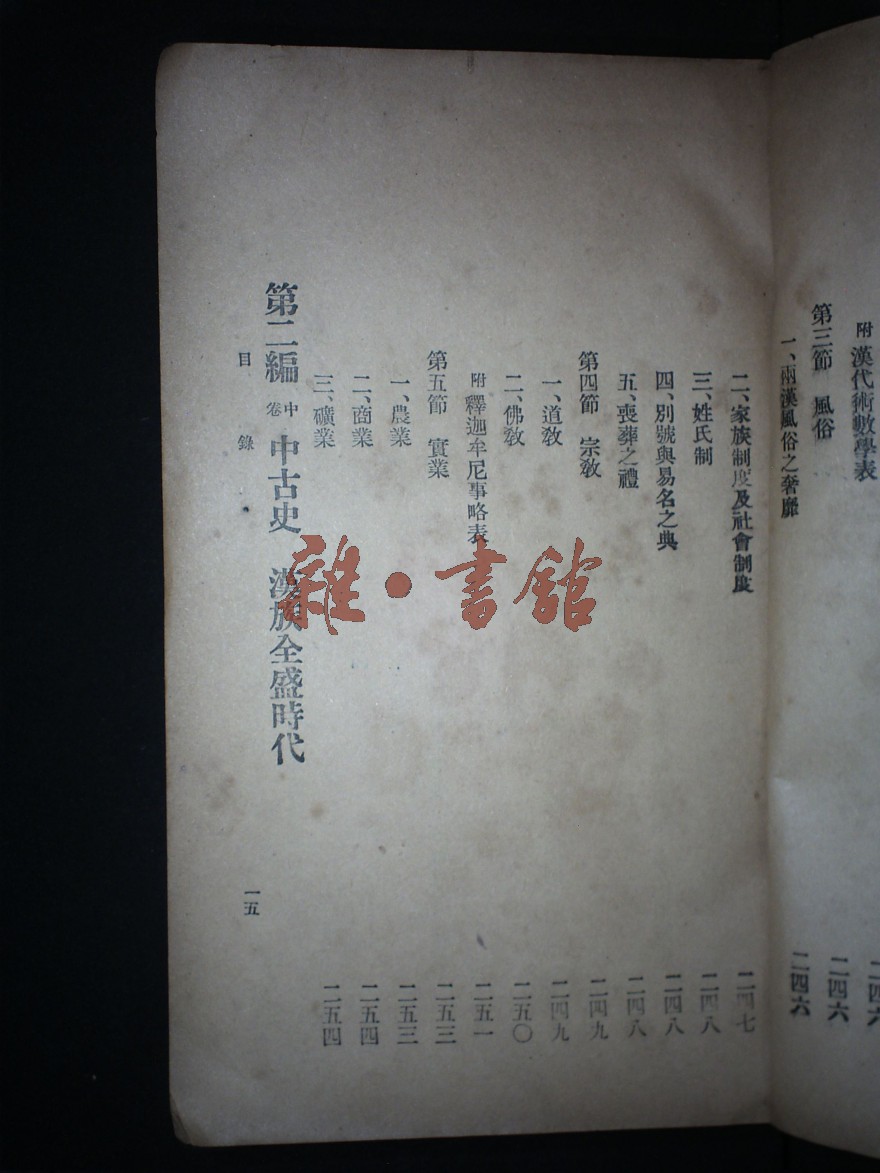 附 漢代術數學表 二四六
第三節 風俗 二四六
一、兩漢風俗之奢靡 二四六
二、家族制度及社會制度 二四七
三、姓氏制 二四八
四、別號與易名之典 二四八
五、喪葬之禮 二四八
第四節 宗教 二四九
一、道教 二四九
二、佛教 二五〇
附 釋迦牟尼事略表 二五一
第五節 實業 二五三
一、農業 二五三
二、商業 二五四
三、礦業 二五四
第二編 中卷 中古史 漢族全盛時代
目錄 一五
雜·書館